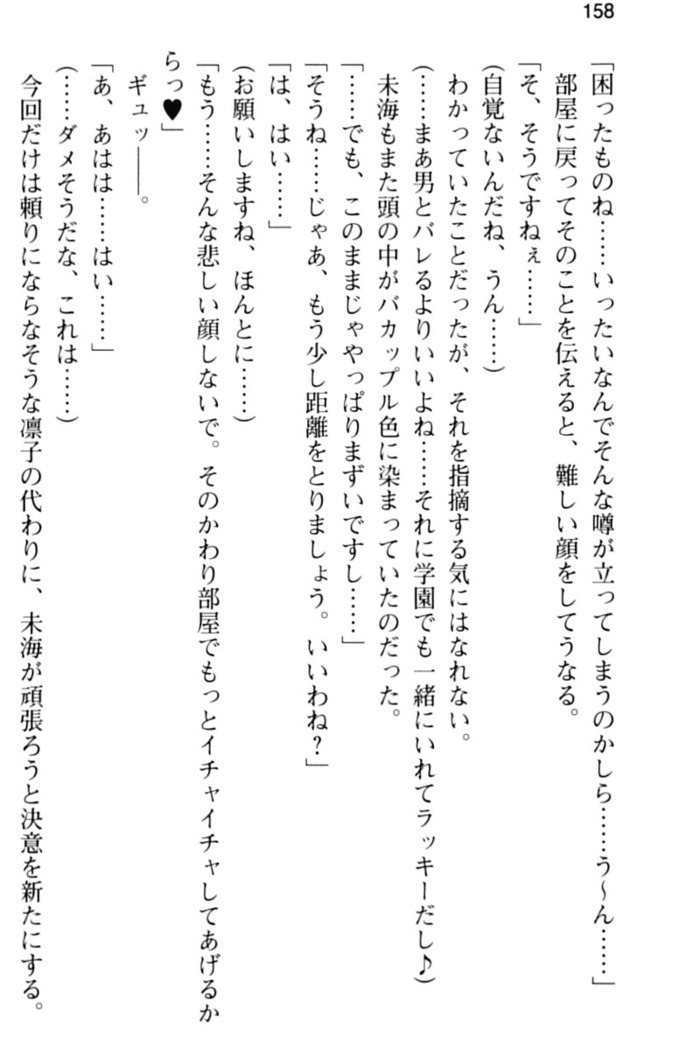 158
「困ったものね……いったいなんでそんな噂が立ってしまうのかしら……う〜ん……」
部屋に戻ってそのことを伝えると、難しい顔をしてうなる。
「そ、そうですねぇ……」
(自覚ないんだね、うん……)
わかっていたことだったが、それを指摘する気にはなれない。
(……まあ男とバレるよりいいよね……それに学園でも一緒にいれてラッキーだし♪)
未海もまた頭の中がバカップル色に染まっていたのだった。
「……でも、このままじゃやっぱりまずいですし……」
「そうね……じゃあ、もう少し距離をとりましょう。いいわね?」
「は、はい……」
(お願いしますね、ほんとに……)
「もう……そんな悲しい顔しないで。そのかわり部屋でもっとイチャイチャしてあげるか
らっ♥」
ギュッ――。
「あ、あはは……はい……」
(……ダメそうだな、これは……)
今回だけは頼りにならなそうな凛子の代わりに、未海が頑張ろうと決意を新たにする。